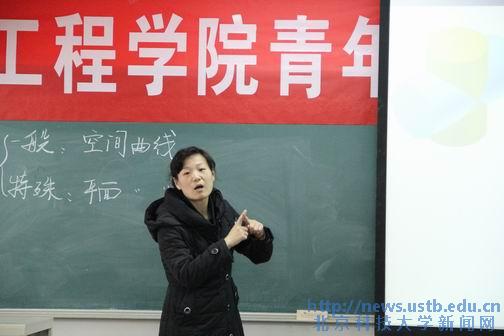 工程学院青年
一般：空间曲线
特殊：平面 〃
http://news.ustb.edu.cn
北京科技大学新闻网